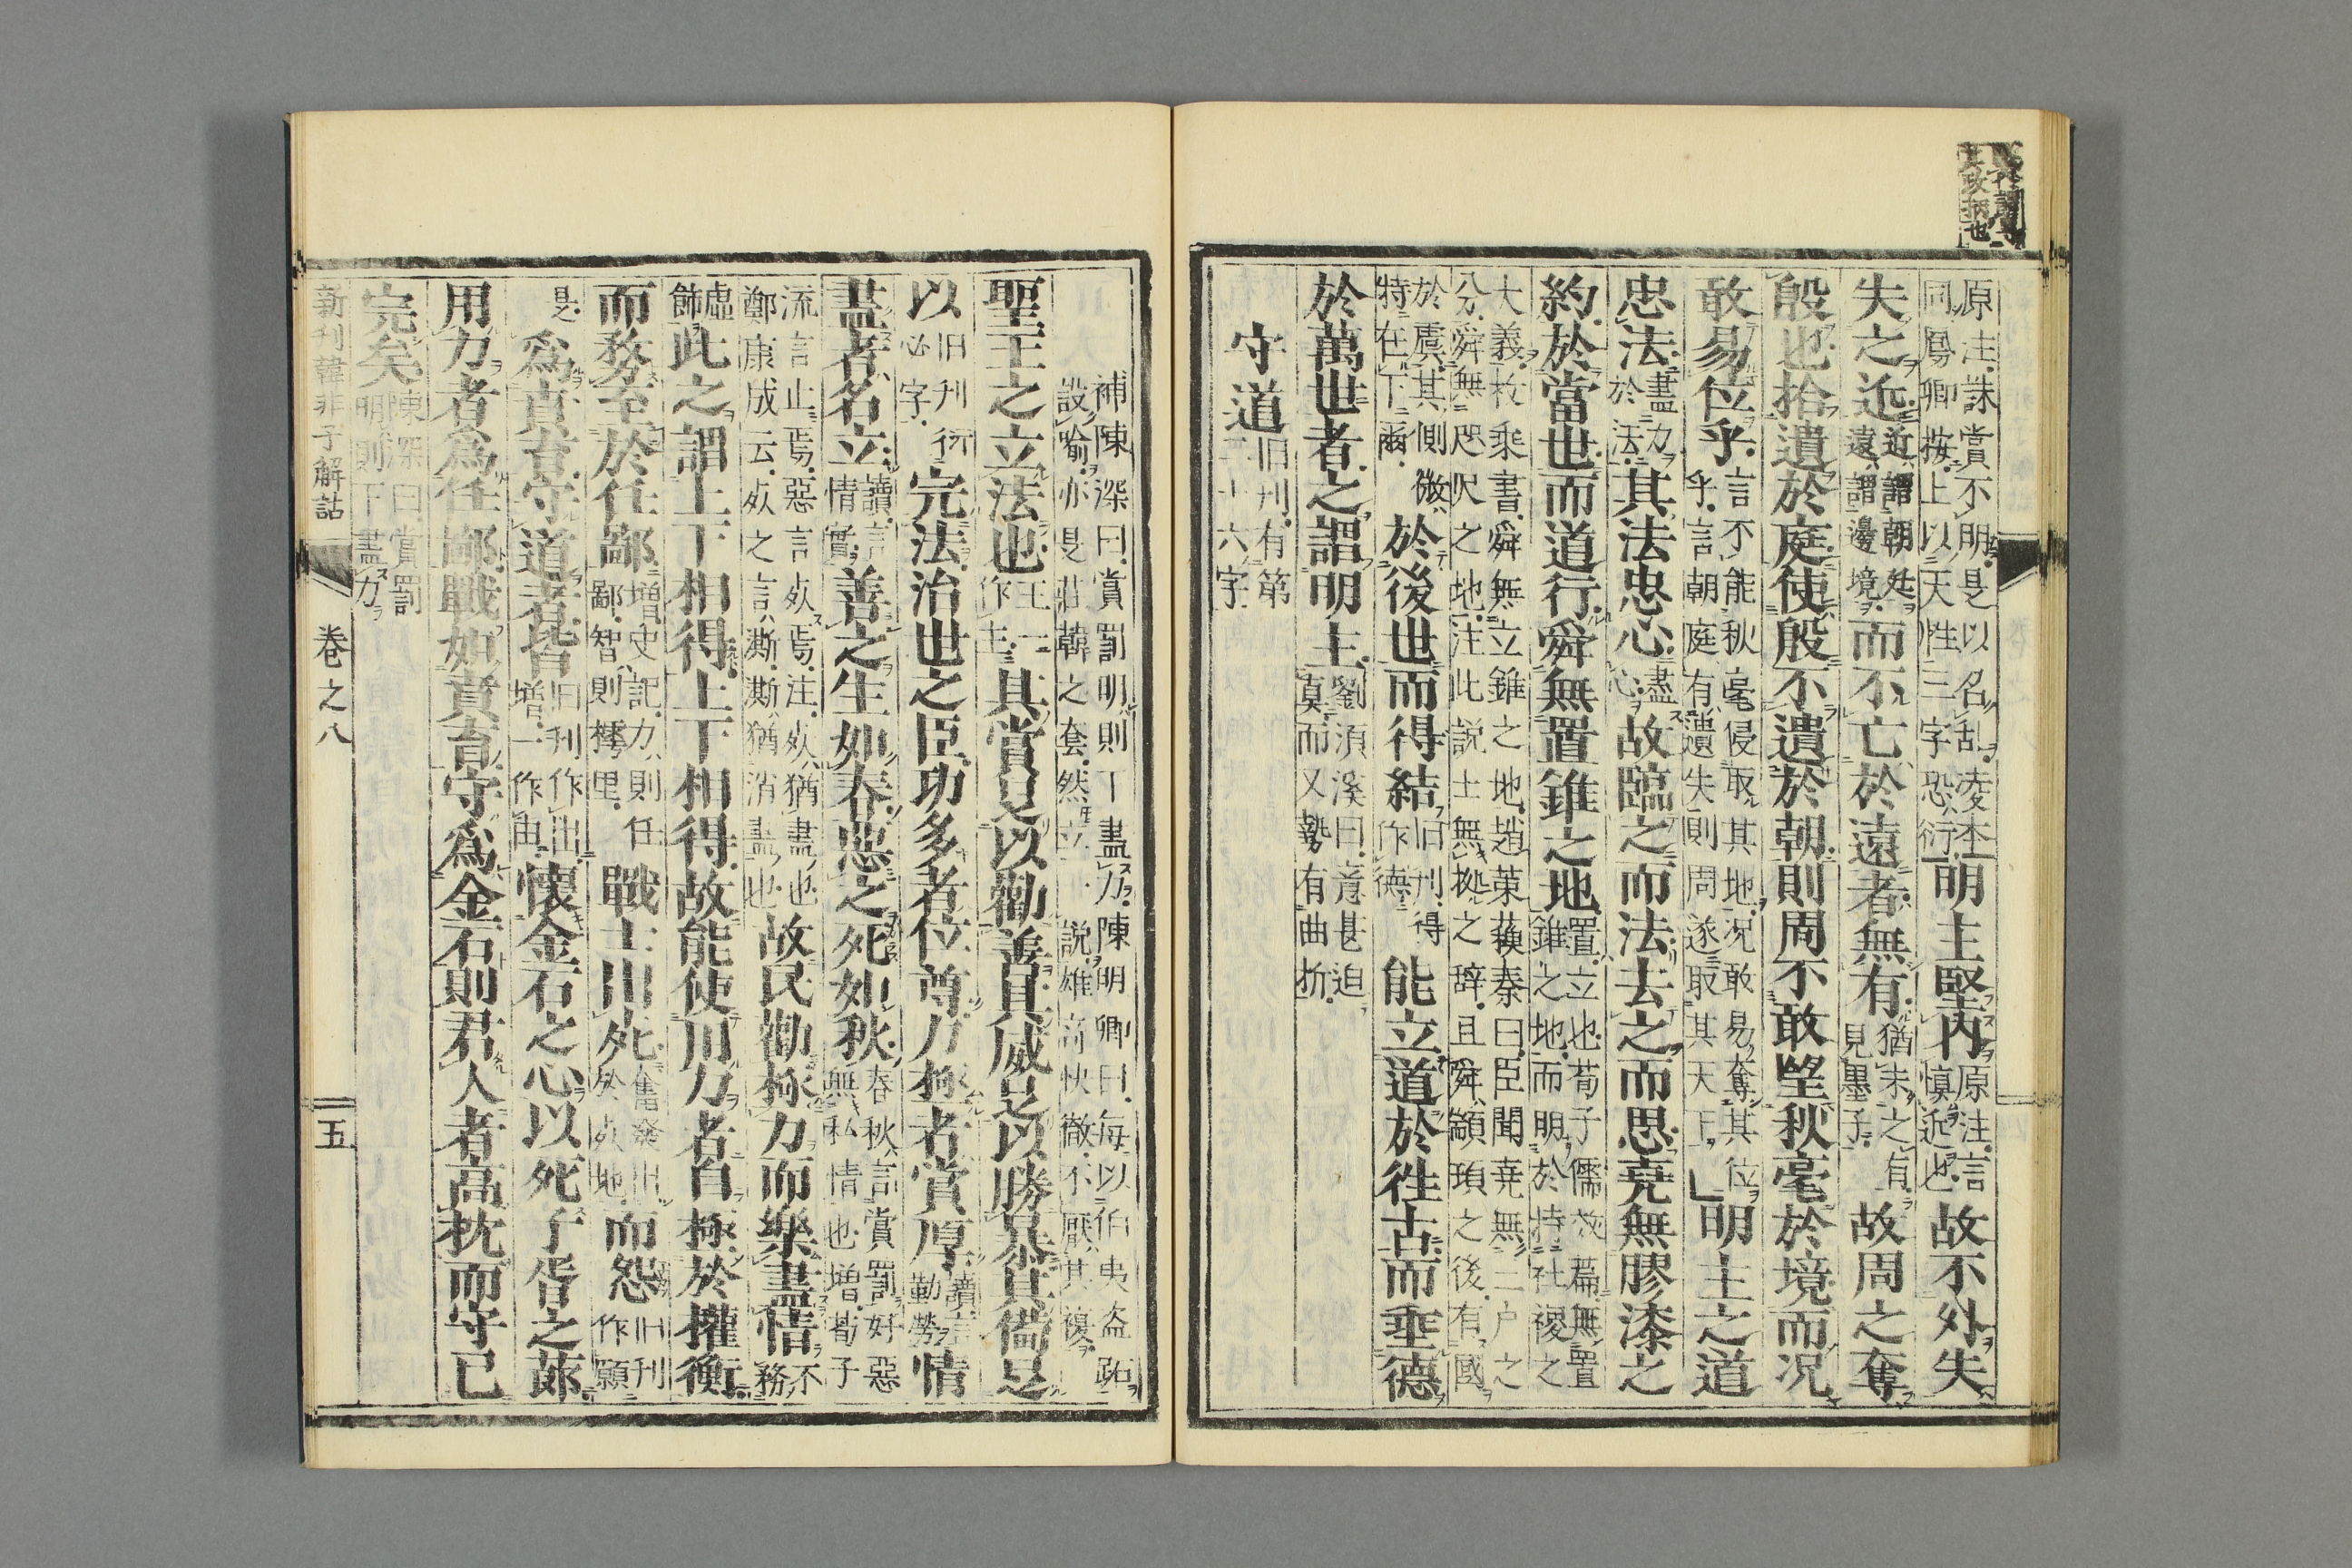 原注誅賞不明是以名乱凌本
同鳳卿按上以天性三字恐衍明主堅内原注言
慎近也故不外失
失之近近謂朝廷
遠謂邊境而不亡於遠者無有猶未之有
見墨子故周之奪
殷也拾遺於庭使殷不遺於朝則周不敢望秋毫於境而况
敢易位乎言不能秋毫侵取其地况敢易奪其位
乎言朝庭有遺失則周遂取其天下明主之道
忠法盡力
於法其法忠心盡
心故臨之而法去之而思堯無膠漆之
約於當世而道行舜無置錐之地置立也荀子儒效篇無置
錐之地而明於持社稷之
大義枚乘書舜無立錐之地趙策蘓秦曰臣聞堯無三户之
分舜無咫尺之地注此説士無拠之辞且舜顓頊之後有國
於虞其側微
特在下爾於後世而得結旧刊得
作德能立道於徃古而垂德
於萬世者之謂明主劉湏溪曰意甚迫
真而又㔟有曲折
守道旧刊有第
二十六字
補陳深曰賞罰明則下盡力陳明卿曰毎以伯夷盗跖
設喩亦是莊韓之套然立説雄高快徹不厭其複
聖王之立法也王一
作主其賞足以勸善其威足以勝暴其備足
以旧刊衍
必字完法治世之臣功多者位尊力極者賞厚讀言
勤勞情
盡者名立讀言
情實善之生如春惡之死如秋春秋言賞罰好惡
無私情也増荀子
流言止焉惡言死焉注死猶盡也
鄭康成云死之言澌澌猶消盡也故民勸極力而樂盡情不
務
虛
飾此之謂上下相得上下相得故能使用力者自極於權衡
而務至於任鄙増史記力則任
鄙智則樗里戰士出死奮發出
於死地而怨旧刊
作願
為賁者守道者皆旧刊作出
増一作由懷金石之心以死子胥之莭
是
用力者為任鄙戰如賁育守為金石則君人者高枕而守已
完矣陳深曰賞罰
明則下盡力
新刊韓非子解詁 卷之八 五